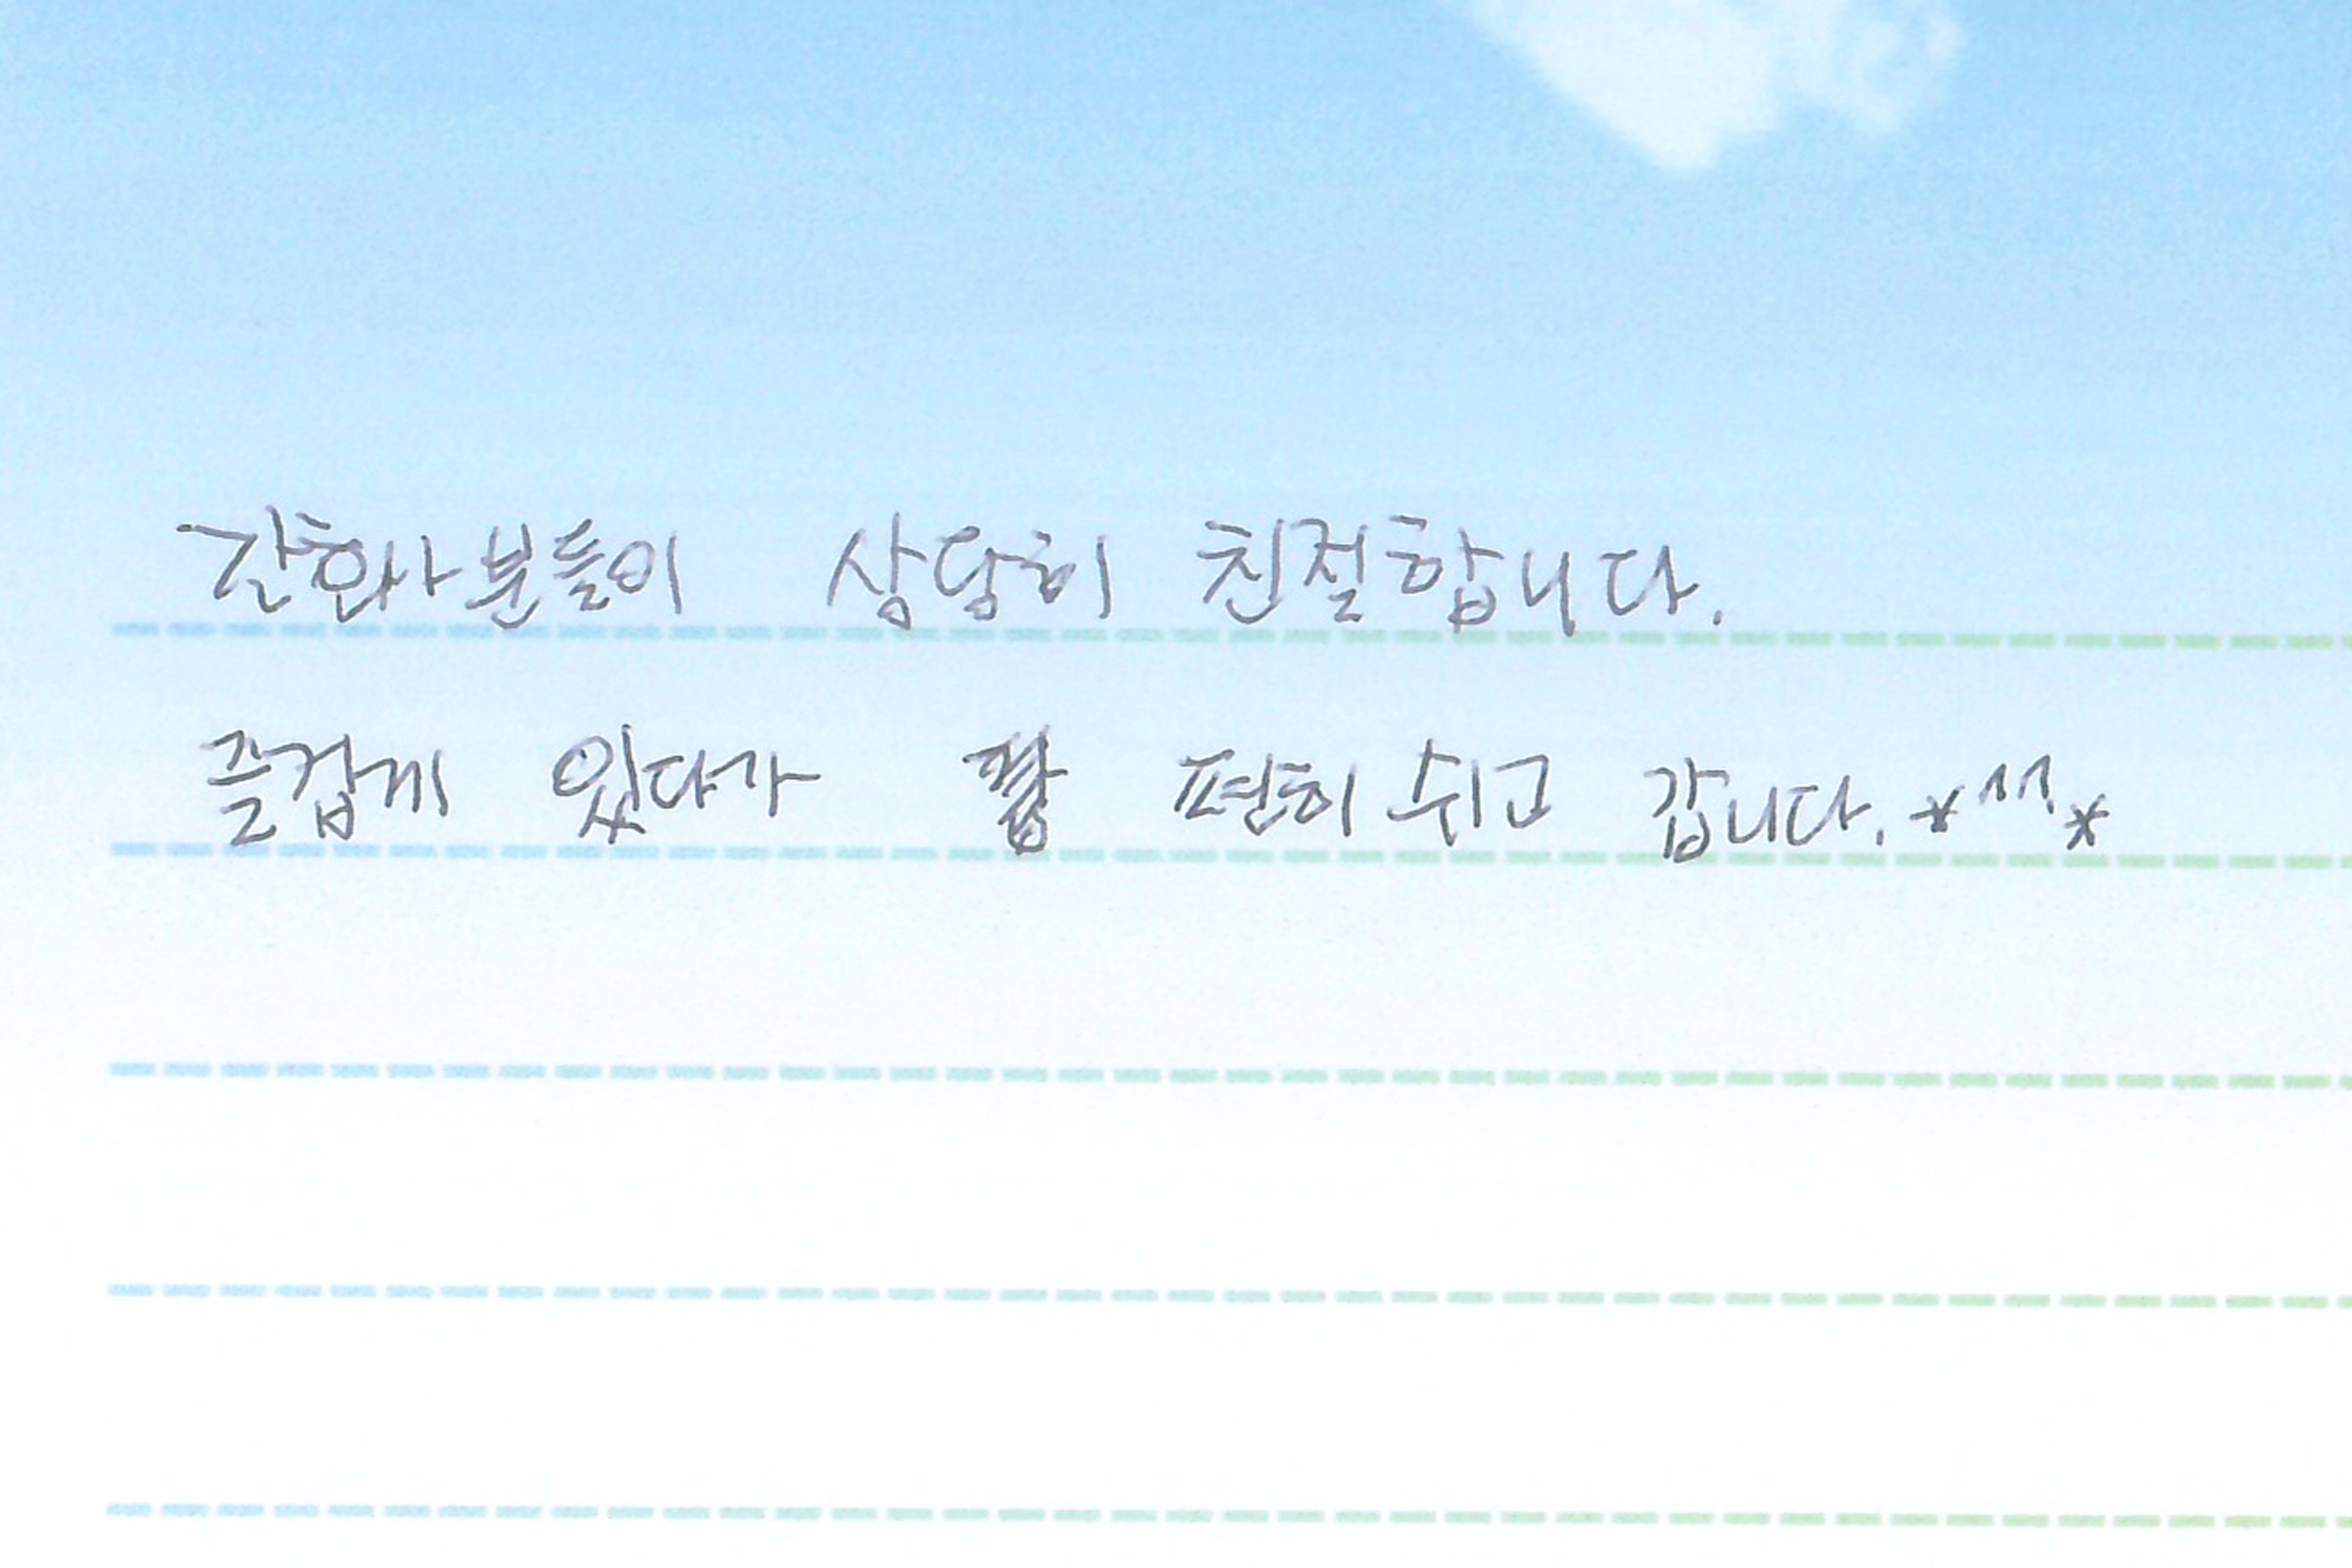 간호사분들이 상당히 친절합니다.
즐겁게 있다가 편히 쉬고 갑니다. *^^*